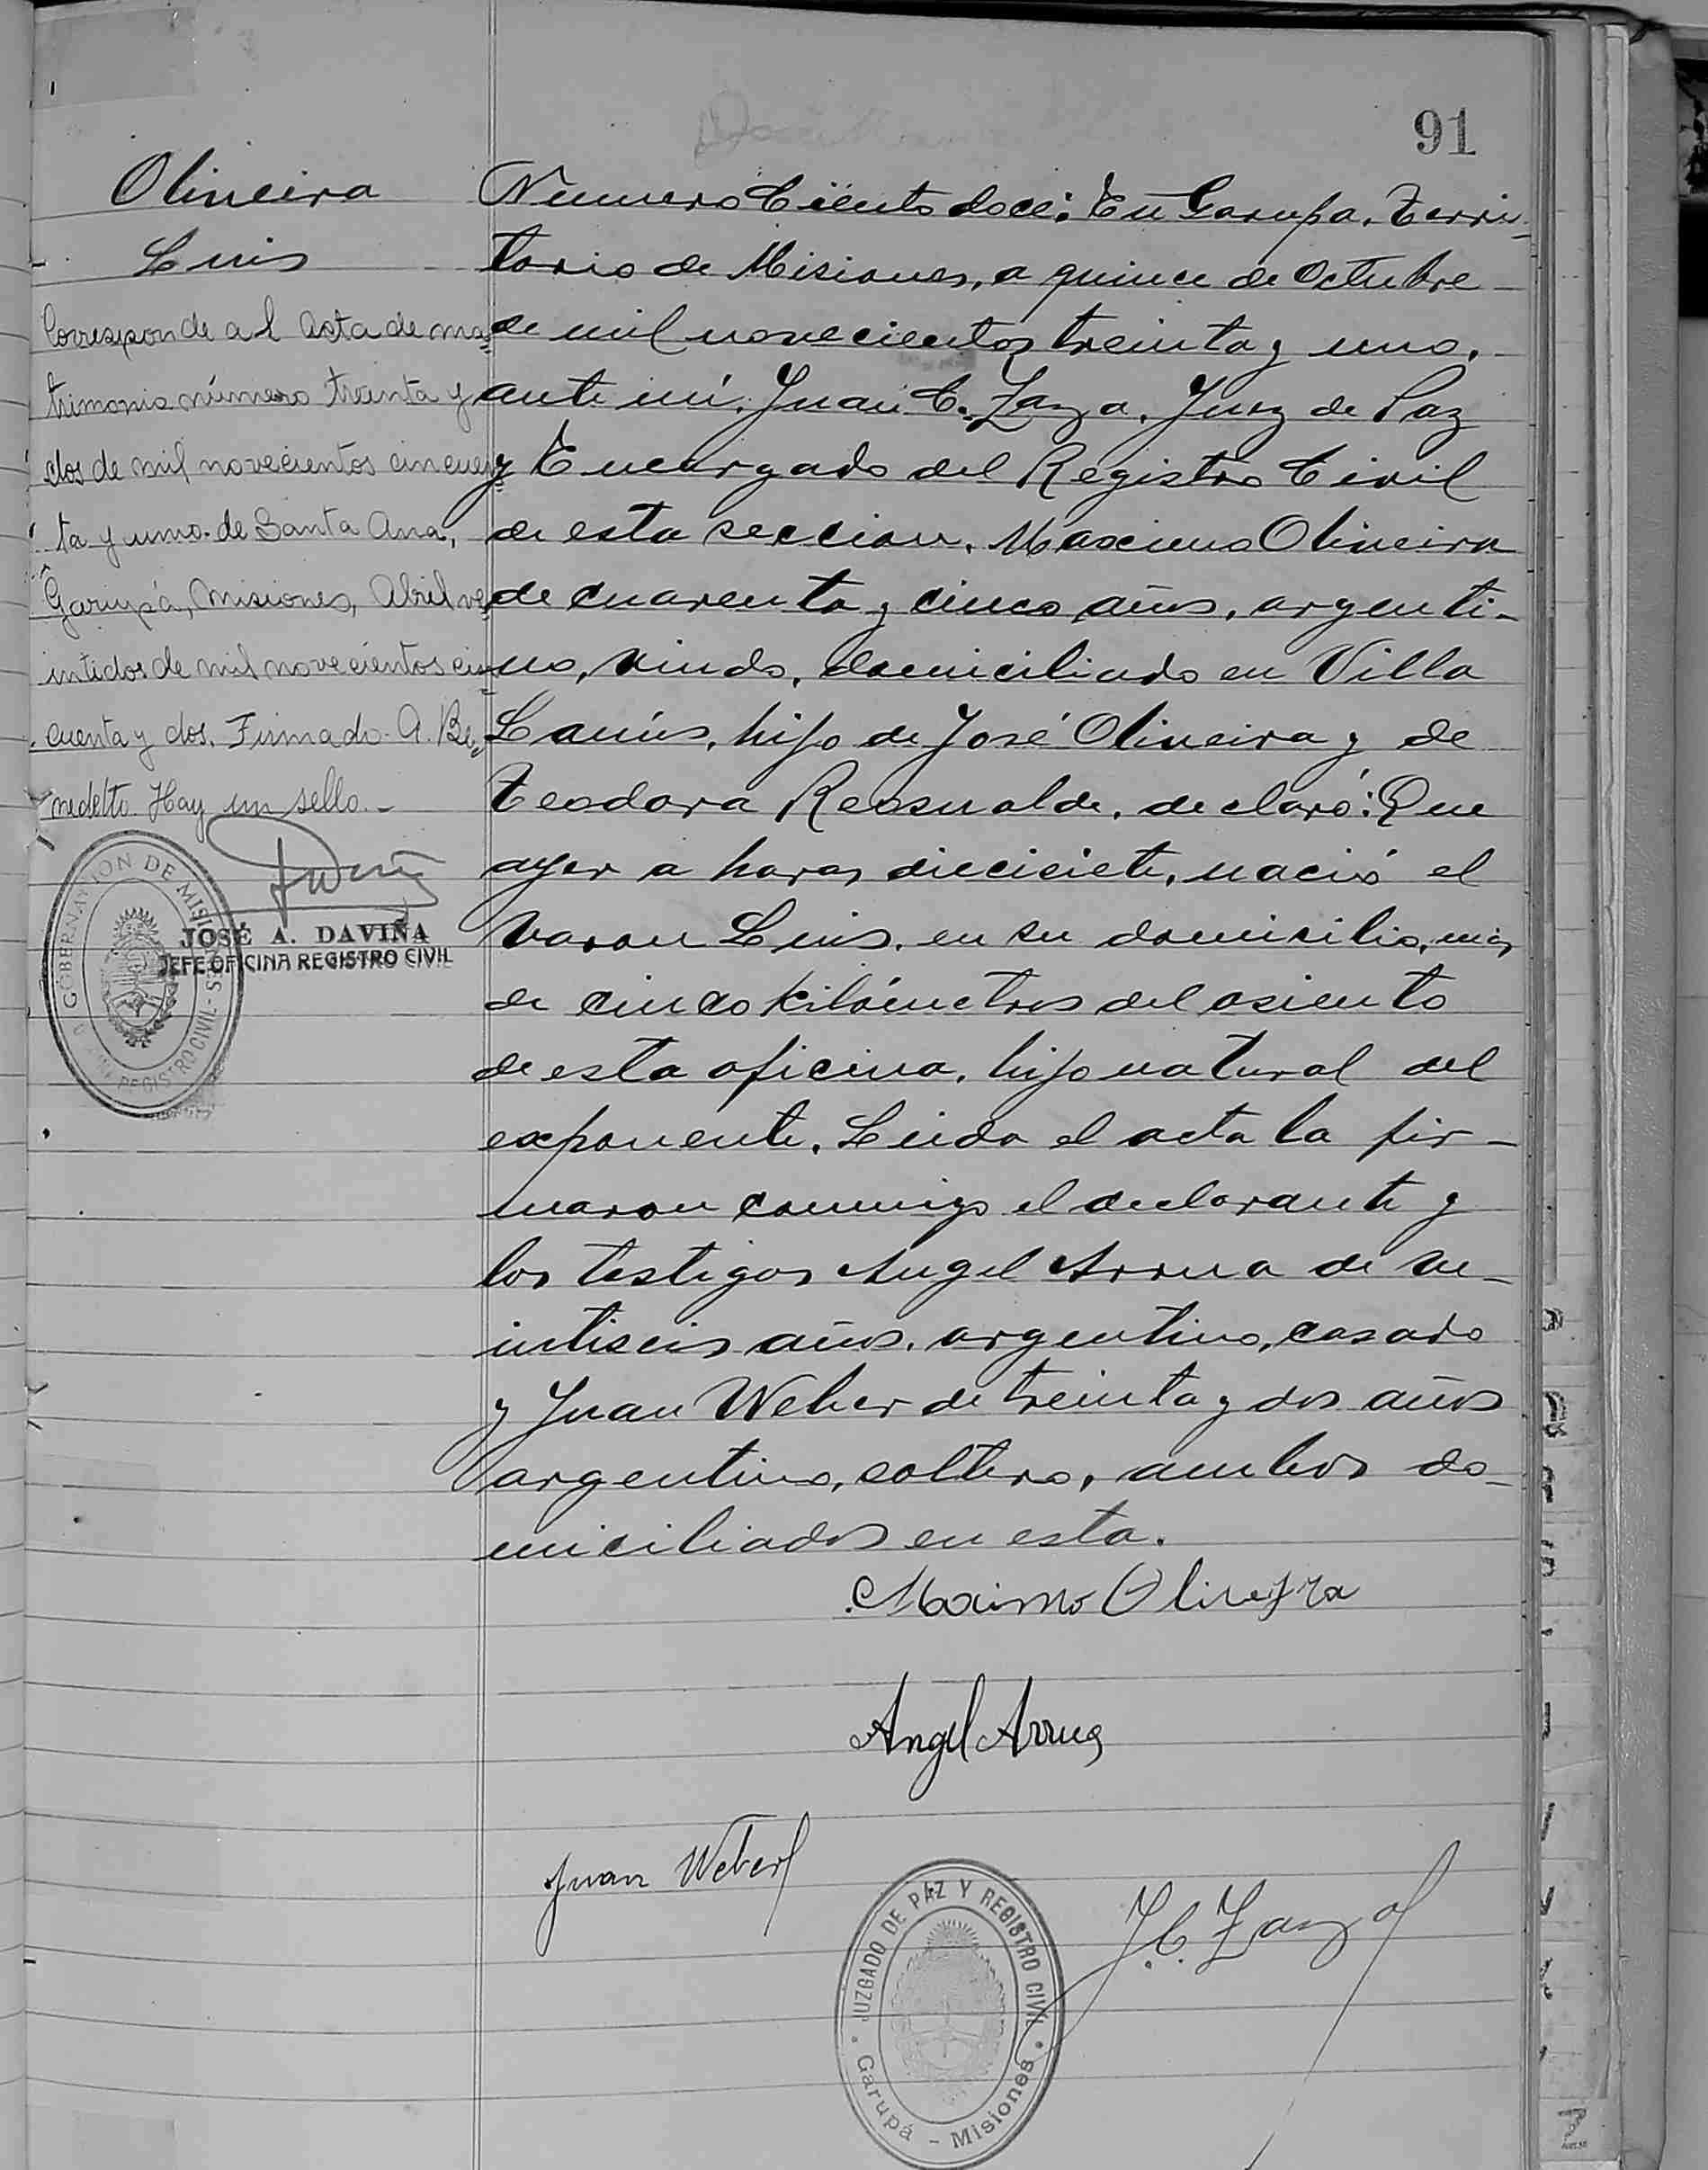 91
Olineira
Luis
Corresponde al Acta de ma=
trimonio número treinta y
dos de mil novecientos cincuen=
ta y uno. de Santa Ana,
Garupá, Misiones, Abril ve=
intidos de mil novecientos cin=
cuenta y dos. Firmado. A. Be=
nedetto. Hay un sello.-
GOBERNACION DE MISIONES - REGISTRO CIVIL
JOSÉ A. DAVIÑA
JEFE OFICINA REGISTRO CIVIL
Número Ciento doce: En Garupa, Terri-
torio de Misiones, a quince de Octubre
de mil novecientos treinta y uno,
ante mí, Juan C. Zaya, Juez de Paz
y Encargado del Registro Civil
de esta seccion, Maximo Olineira
de cuarenta y cinco años, argenti-
no, viudo, domiciliado en Villa
Lanús, hijo de José Olineira y de
Teodora, declaró: Que
ayer a horas diecisiete, nació el
varon Luis, en su domicilio, más
de cinco kilómetros del asiento
de esta oficina, hijo natural del
exponente. Leida el acta la fir-
maron conmigo el declarante y
los testigos Angel Arrua de ve-
intiseis años, argentino, casado
y Juan Weber de treinta y dos años
argentino, soltero, ambos do-
miciliados en esta.
Maximo Oliveyra
Angel Arrua
Juan Weber
J. C. Zaya
JUZGADO DE PAZ Y REGISTRO CIVIL
Garupá - Misiones